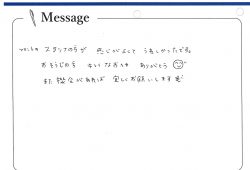 Message
スタッフの方が 感じがよくて うれしかったです。
おそうじの方 キレイなお仕事 ありがとう
また 機会があれば 宜しくお願いします